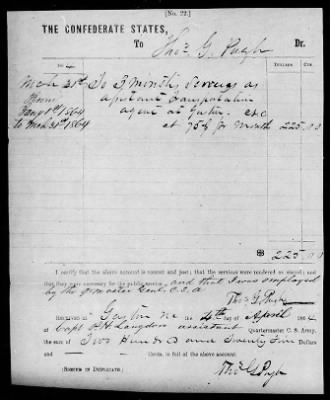 [No. 22.]
THE CONFEDERATE STATES,
To Thos. G. Pugh Dr.
Dollars Cts.
Mch 31st To 3 months services as
From assistant transportation
Jany 1st 1864 agent at Gaston &c
to Mch 31st 1864 at 75$ pr month 225 00
$ 225 00
I certify that the above account is correct and just; that the services were rendered as stated; and
that they were necessary for the public service, and that I was employed
by the Qr master Genl. C.S.A
Thos G. Pugh
Received at Gaston NC the 4th day of April 1864
of Capt P.H. Langdon assistant Quartermaster C. S. Army,
the sum of Two Hundred and Twenty five Dollars
and cents, in full of the above account.
(Signed in Duplicate.)
Thos G Pugh